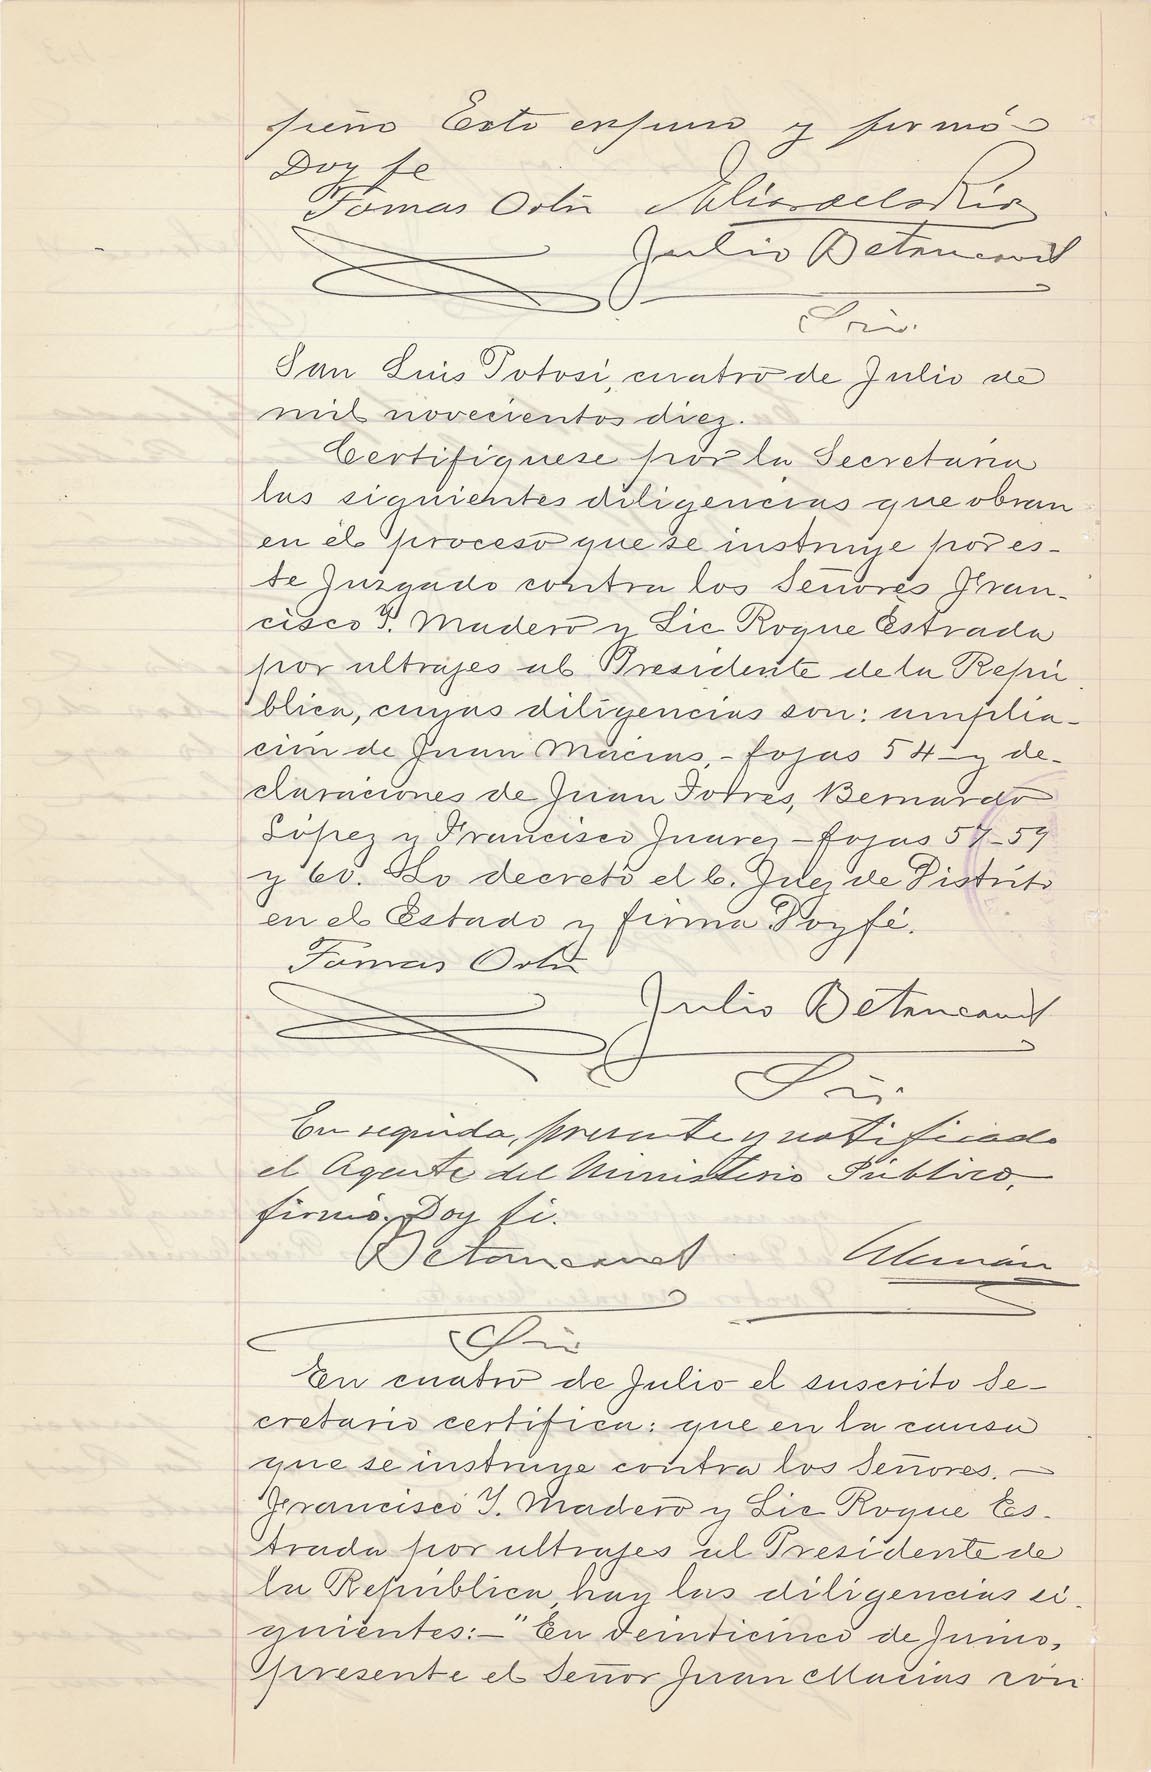 peño Esto expuso y firmó
Doy fe
Tomas Ortiz Elias de los Rios
Julio Betancourt
Srio.
San Luis Potosí, cuatro de Julio de
mil novecientos diez.
Certifíquese por la Secretaría
las siguientes diligencias que obran
en el proceso que se instruye por es-
te Juzgado contra los Señores Fran-
cisco I. Madero y Lic Roque Estrada
por ultrajes al Presidente de la Repú
blica, cuyas diligencias son: amplia-
ción de Juan Macias,- fojas 54 - y de-
claraciones de Juan Torres, Bernardo
López y Francisco Juarez - fojas 57-59
y 60. Lo decretó el C. Juez de Distrito
en el Estado y firma Doy fé.
Tomas Ortiz
Julio Betancourt
Srio
En seguida, presente y notificado
el Agente del Ministerio Público,
firmó. Doy fe.
Betancourt Alemán
Srio
En cuatro de Julio el suscrito Se-
cretario certifica: que en la causa
que se instruye contra los Señores. -
Francisco I. Madero y Lic Roque Es-
trada por ultrajes al Presidente de
la República, hay las diligencias si-
guientes:- "En veinticinco de Junio,
presente el Señor Juan Macias con